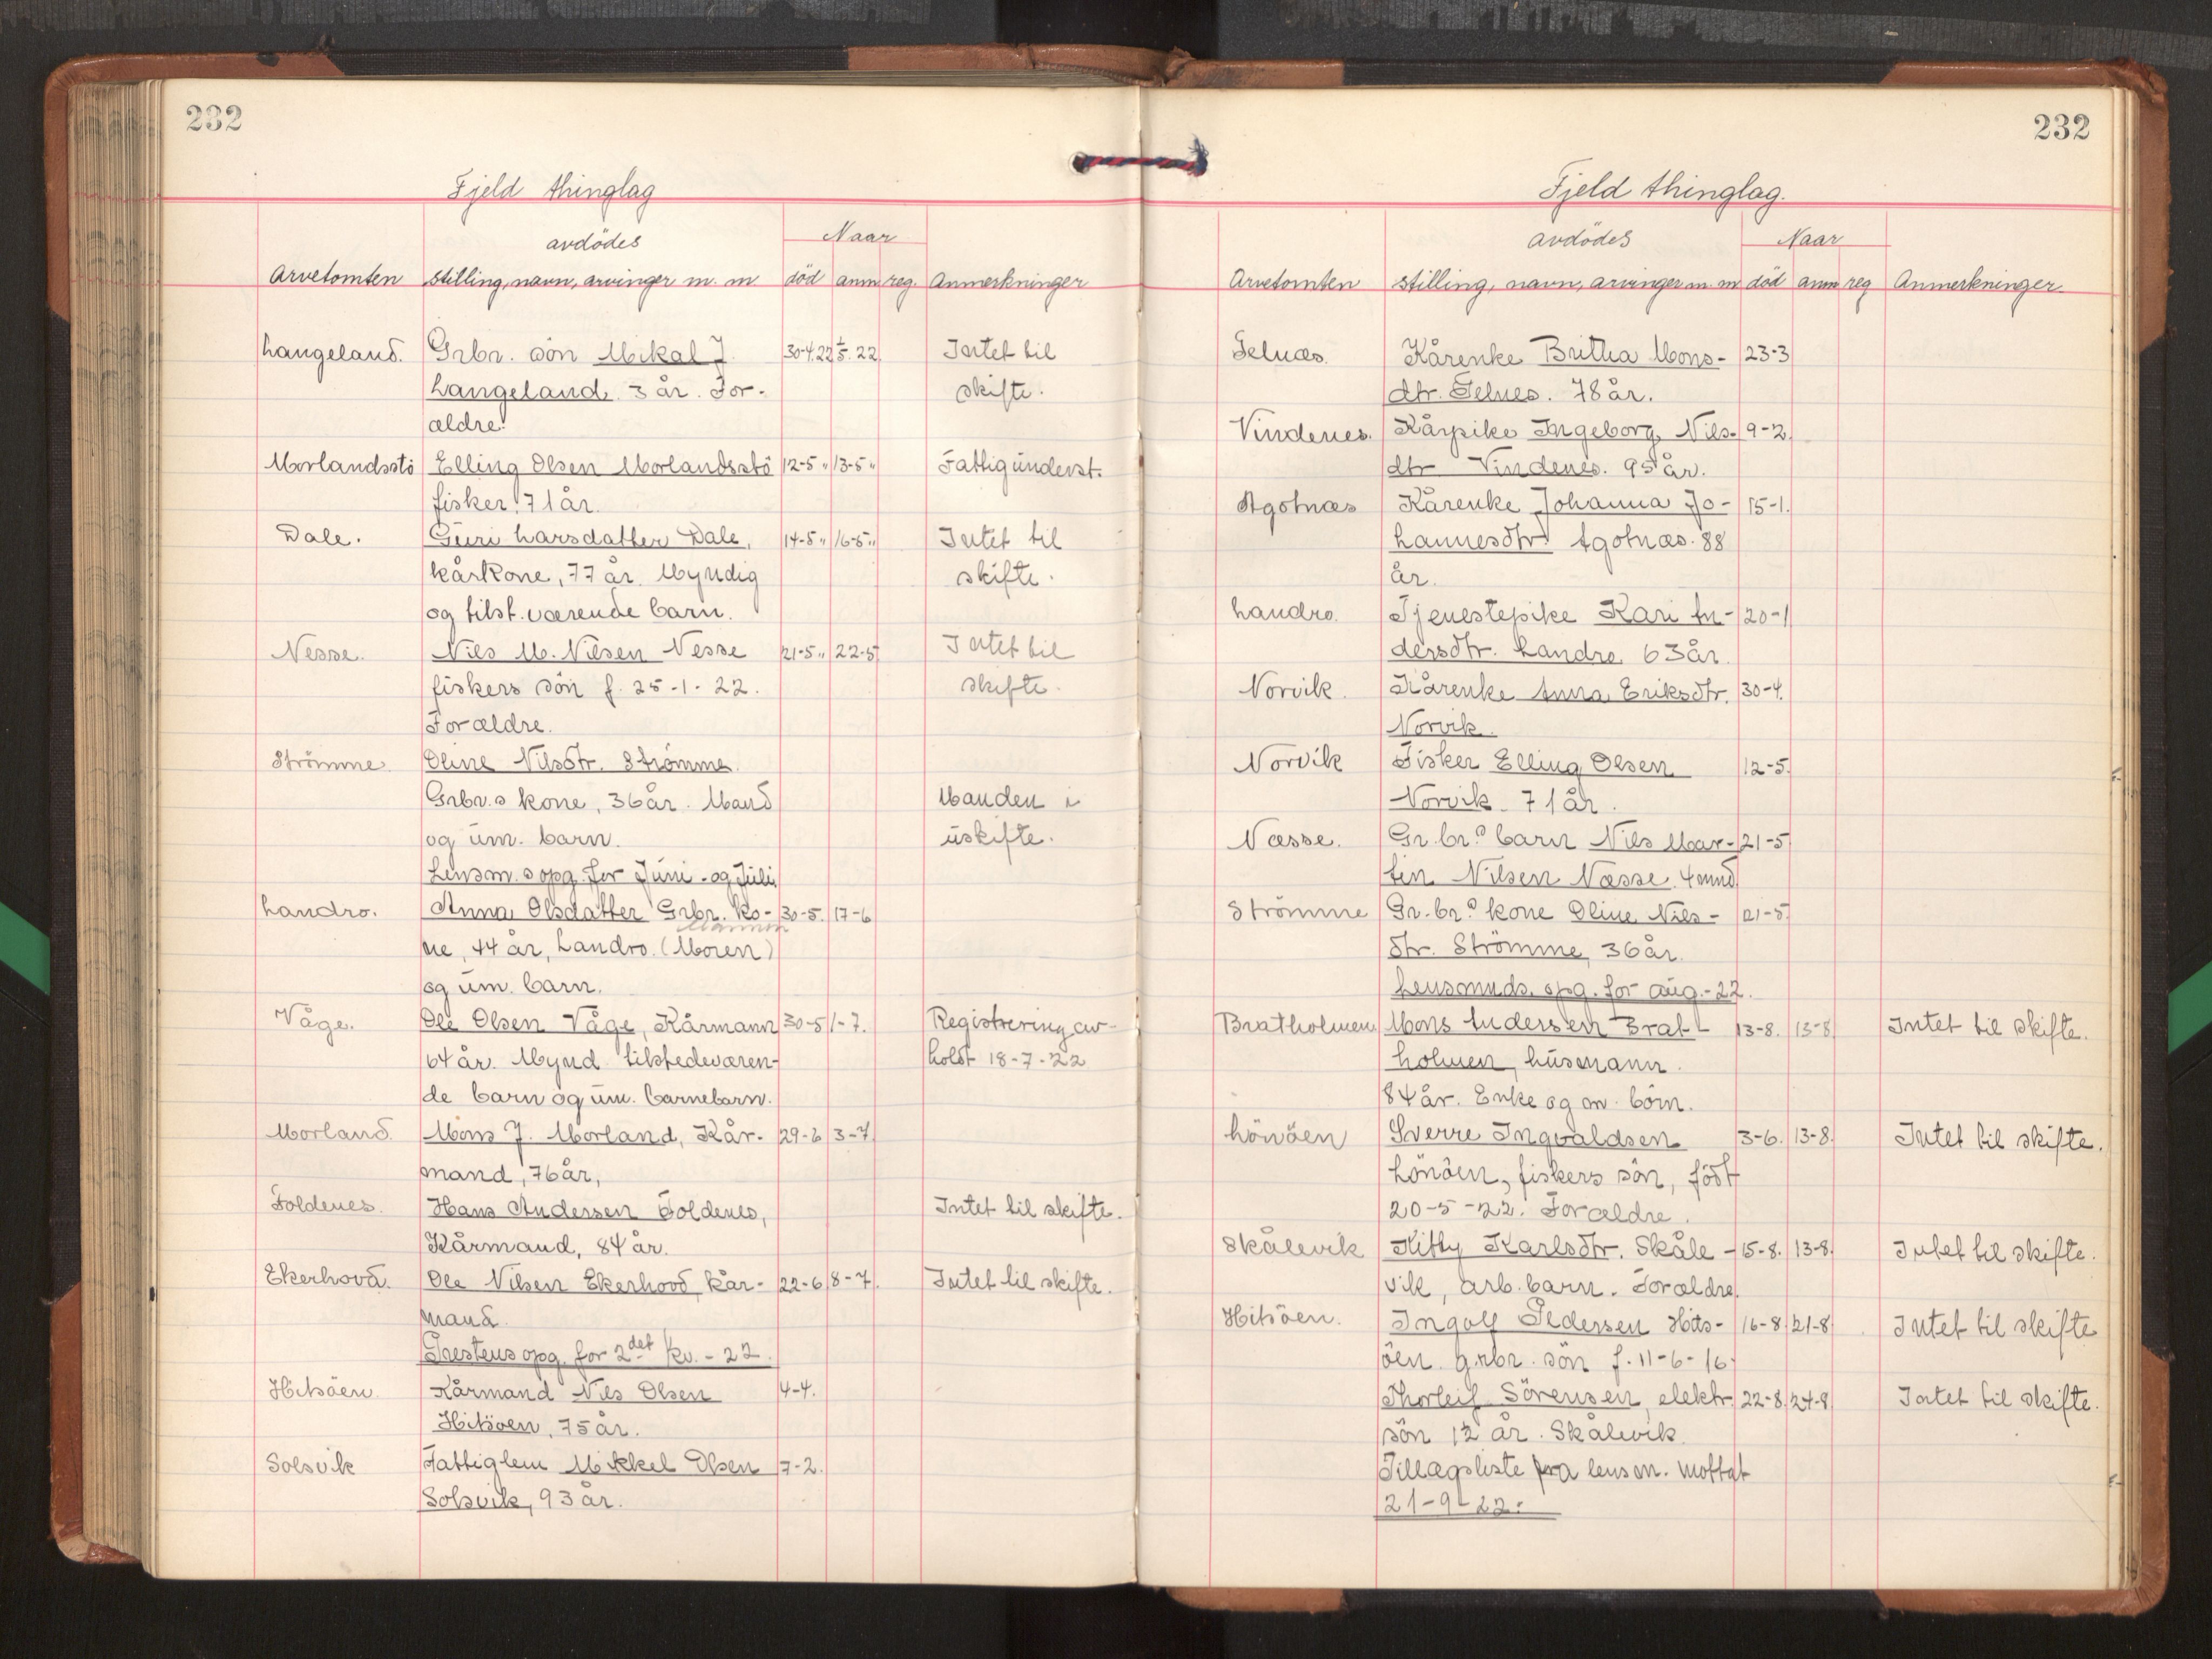 232
Fjeld thinglag
avdödes
Naar
Arvetomten stilling, navn, arvinger m. m död anm reg. Anmerkninger
Langeland. Grbr. sön Mikal J. 30-4.22 1/5. 22. Intet til
Langeland, 3 år. For- skifte.
ældre.
Morlandsstö Elling Olsen Morlandsstö 12-5 " 13-5 " Fattigunderst.
fisker, 71 år.
Dale. Guri Larsdatter Dale, 14-5 " 16-5 " Intet til
kårkone, 77 år. Myndig skifte.
og tilst. værende barn.
Nesse. Nils M. Nilsen Nesse 21-5 " 22-5 Intet til
fiskers sön f. 25-1-22. skifte.
Forældre.
Strömme. Oline Nilsdtr. Strömme.
Grbr.s kone, 36 år. Mand Manden i
og um. barn. uskifte.
Lensm.s opg. for Juni - og Juli.
Landro. Anna Olsdatter Grbr. ko- 30-5. 17-6
Mannen
ne, 44 år, Landro. (Moren)
og um. barn.
Våge. Ole Olsen Våge, Kårmann 30-5 1-7. Registrering av-
64 år. Mynd. tilstedeværen- holdt 18-7-22
de barn og um. barnebarn.
Morland. Mons J. Morland, Kår- 29-6 3-7.
mand, 76 år,
Foldenes. Hans Andersen Foldenes, Intet til skifte.
Kårmand, 84 år.
Ekerhovd. Ole Nilsen Ekerhovd, kår- 22-6 8-7. Intet til skifte.
mand.
Prestens opg. for 2det kv. - 22.
Hitsöen. Kårmand Nils Olsen 4-4.
Hitsöen, 75 år.
Solsvik Fattiglem Mikkel Olsen 7-2.
Solsvik, 93 år.
232
Fjeld thinglag.
avdödes
Naar
Arvetomten stilling, navn, arvinger m. m död anm reg Anmerkninger
Telnæs. Kårenke Britha Mons- 23-3
dtr. Telnes. 78 år.
Vindenes. Kårpike Ingeborg Nils- 9-2.
dtr Vindenes. 95 år.
Agotnæs Kårenke Johanna Jo- 15-1.
hannesdtr. Agotnæs. 88
år.
Landro. Tjenestepike Kari An- 20-1
dersdtr. Landro, 63 år.
Norvik. Kårenke Anna Eriksdtr. 30-4.
Norvik.
Norvik Fisker Elling Olsen 12-5.
Norvik. 71 år.
Næsse. Gr.br.s barn Nils Mar- 21-5
tin Nilsen Næsse. 4 mnd.
Strömme Gr.br.s kone Oline Nils- 21-5.
dtr. Strömme, 36 år.
Lensmnds. opg. for aug.-22.
Bratholmen Mons Andersen Brat- 13-8. 13-8 Intet til skifte.
holmen, husmann.
84 år. Enke og m. börn.
Lönöen Sverre Ingvaldsen 3-6. 13-8. Intet til skifte.
Lönöen, fiskers sön, född
20-5-22. Forældre.
Skålevik Kitty Karlsdtr. Skåle- 15-8. 13-8. Intet til skifte.
vik, arb. barn. Forældre.
Hitsöen. Ingolf Pedersen Hits- 16-8 21-8 Intet til skifte
öen. g.rbr. sön f. 11-6-16.
Thorleif Sörensen, elektr. 22-8. 24-8. Intet til skifte.
sön 12 år. Skålevik.
Tillægsliste fra lensm. mottat
21-9-22.